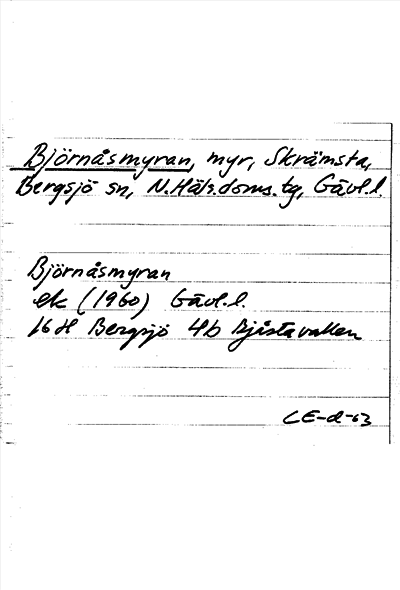 Björnåsmyran, myr, Skrämsta,
Bergsjö sn, N.Häls.doms.tg, Gävl.l.
Björnåsmyran
ek (1960) Gävl.l.
16H Bergsjö 4b Bjåstavallen
CE-d-63